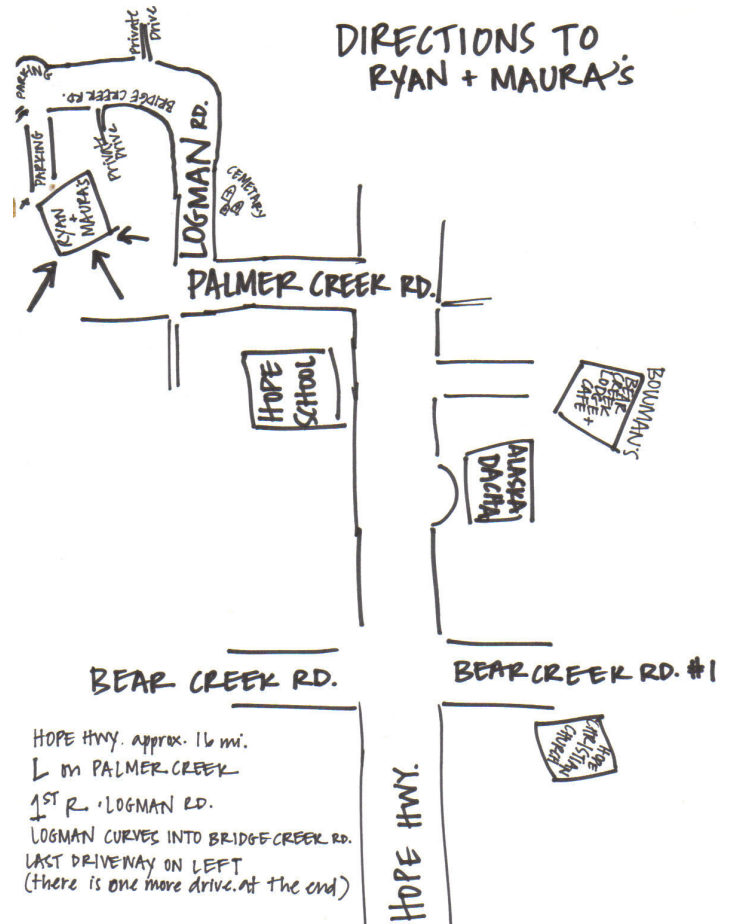 DIRECTIONS TO
RYAN + MAURA'S
Private
Drive
PARKING
BRIDGE CREEK RD.
LOGMAN RD.
PARKING
Private
Drive
CEMETARY
RYAN
+
MAURA'S
PALMER CREEK RD.
HOPE
SCHOOL
BOWMAN'S
BEAR
CREEK
LODGE +
CAFE
ALASKA
DACHA
BEAR CREEK RD.
BEAR CREEK RD. #1
HOPE
CHRISTIAN
CHURCH
HOPE HWY.
HOPE HWY. approx. 16 mi.
L on PALMER CREEK
1ST R. · LOGMAN RD.
LOGMAN CURVES INTO BRIDGE CREEK RD.
LAST DRIVEWAY ON LEFT
(there is one more drive. at the end)